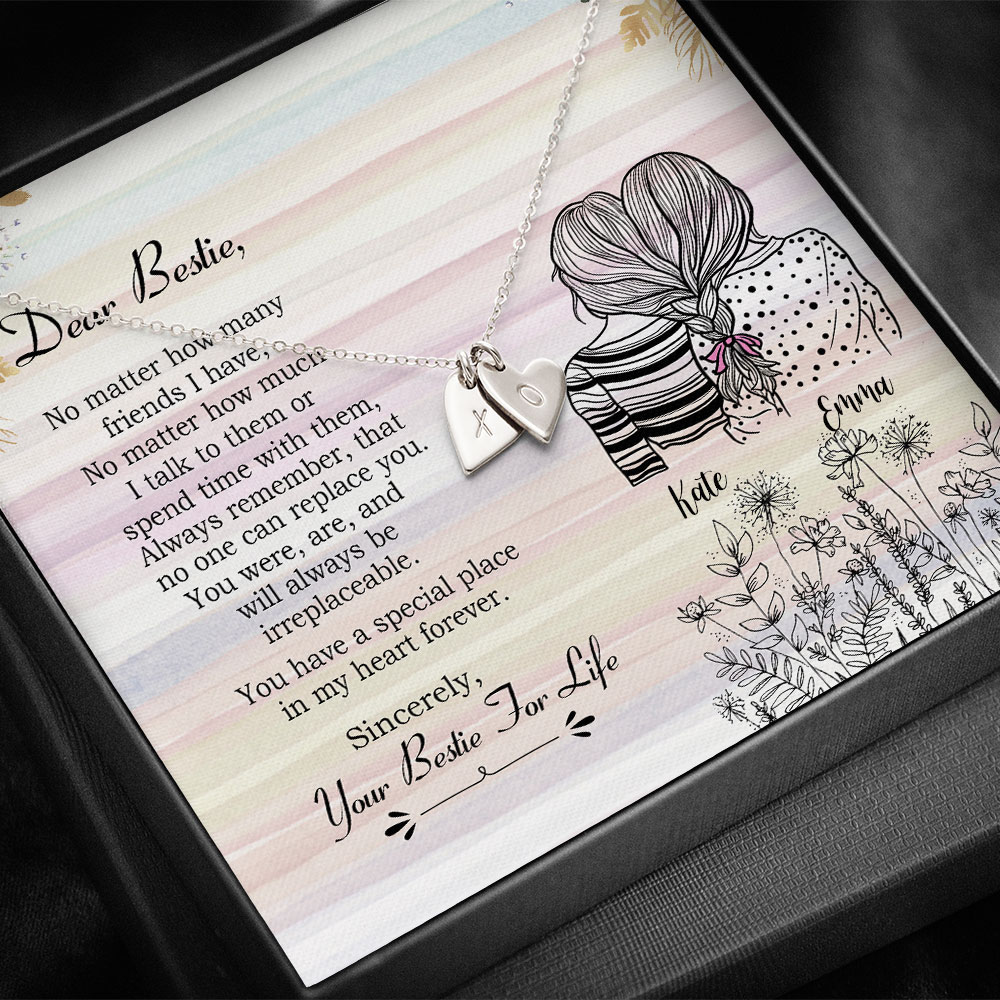 Dear Bestie,
No matter how many
friends I have,
No matter how much
I talk to them or
spend time with them,
Always remember, that
no one can replace you.
You were, are, and
will always be
irreplaceable.
You have a special place
in my heart forever.
Sincerely,
Your Bestie For Life
X
O
Kate
Emma